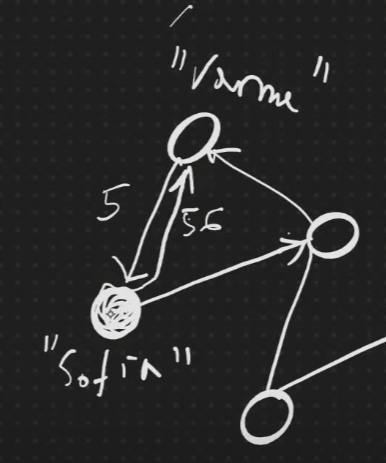 "Varna"
5
56
"Sofia"